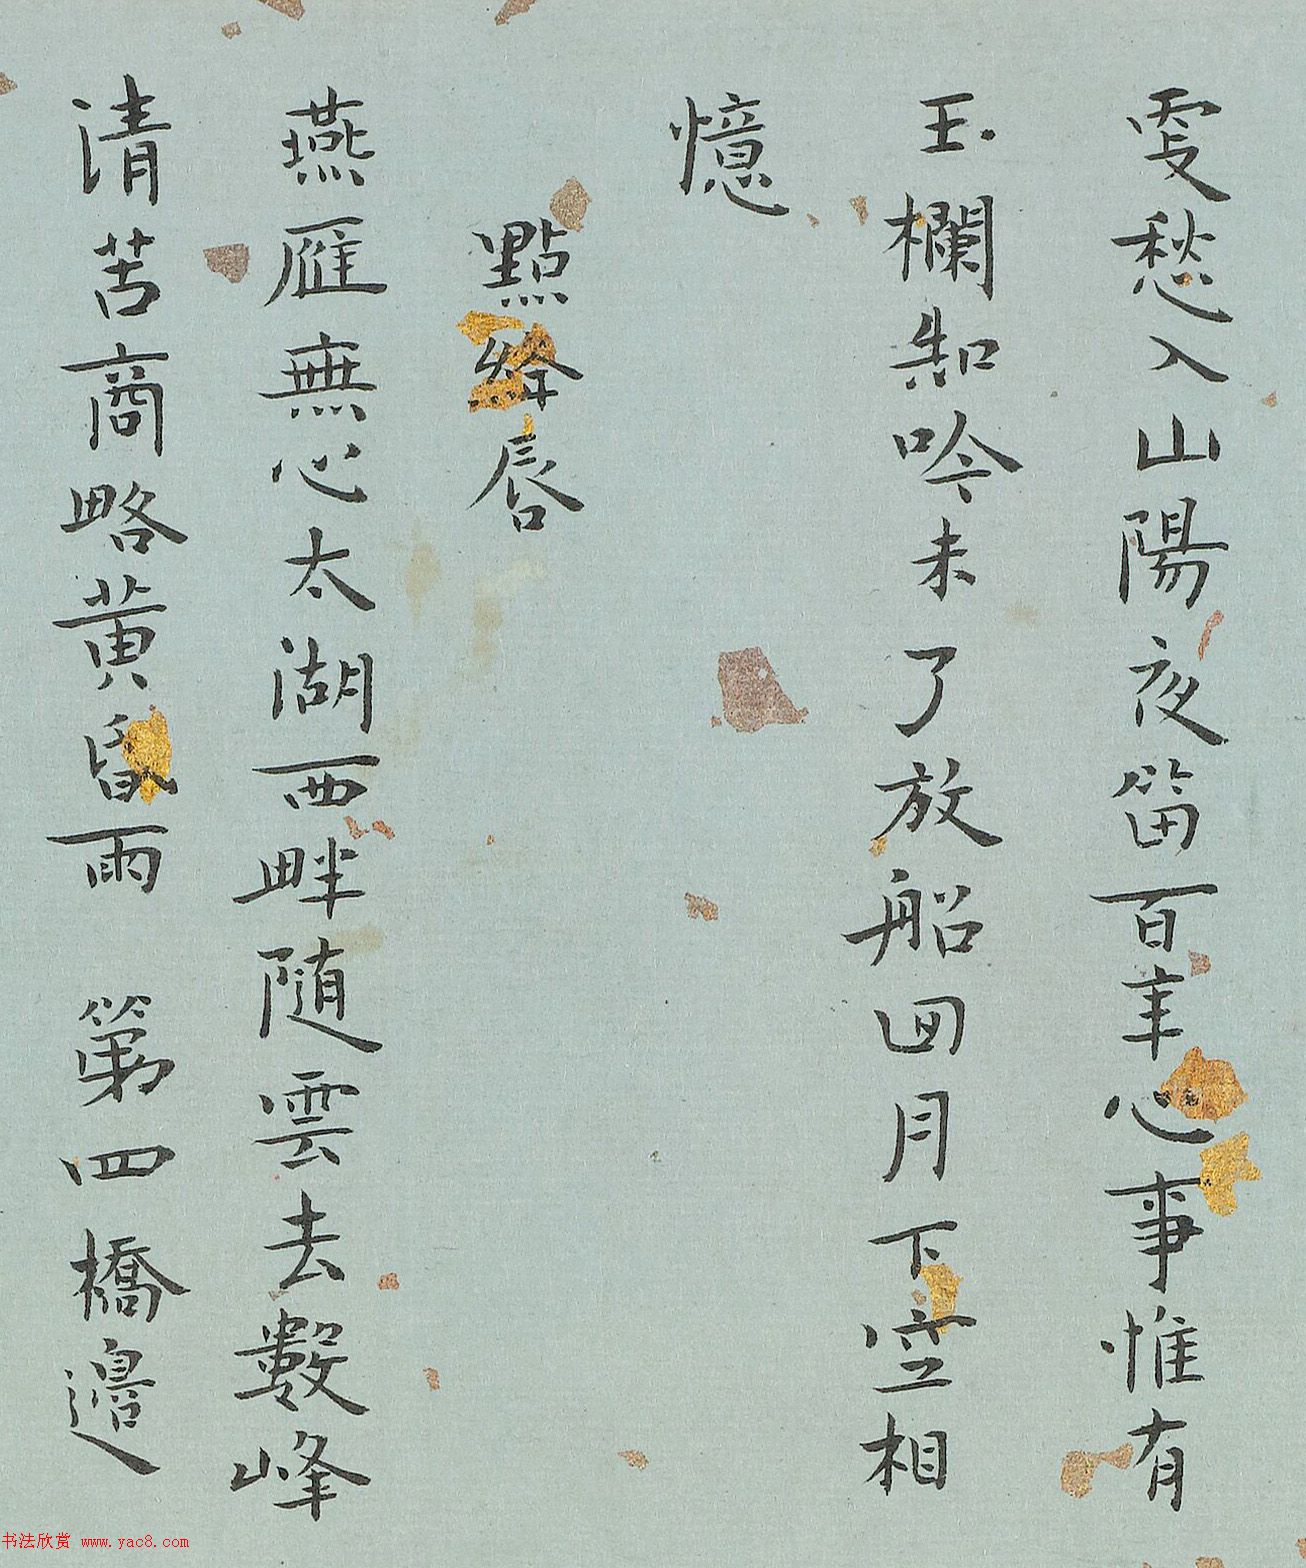 雯愁入山陽夜笛百年心事惟有
玉欄知吟未了放船回月下空相
憶
點絳唇
燕雁無心太湖西畔随雲去數峰
清苦商略黄昏雨 第四橋邊
书法欣赏 www.yac8.com